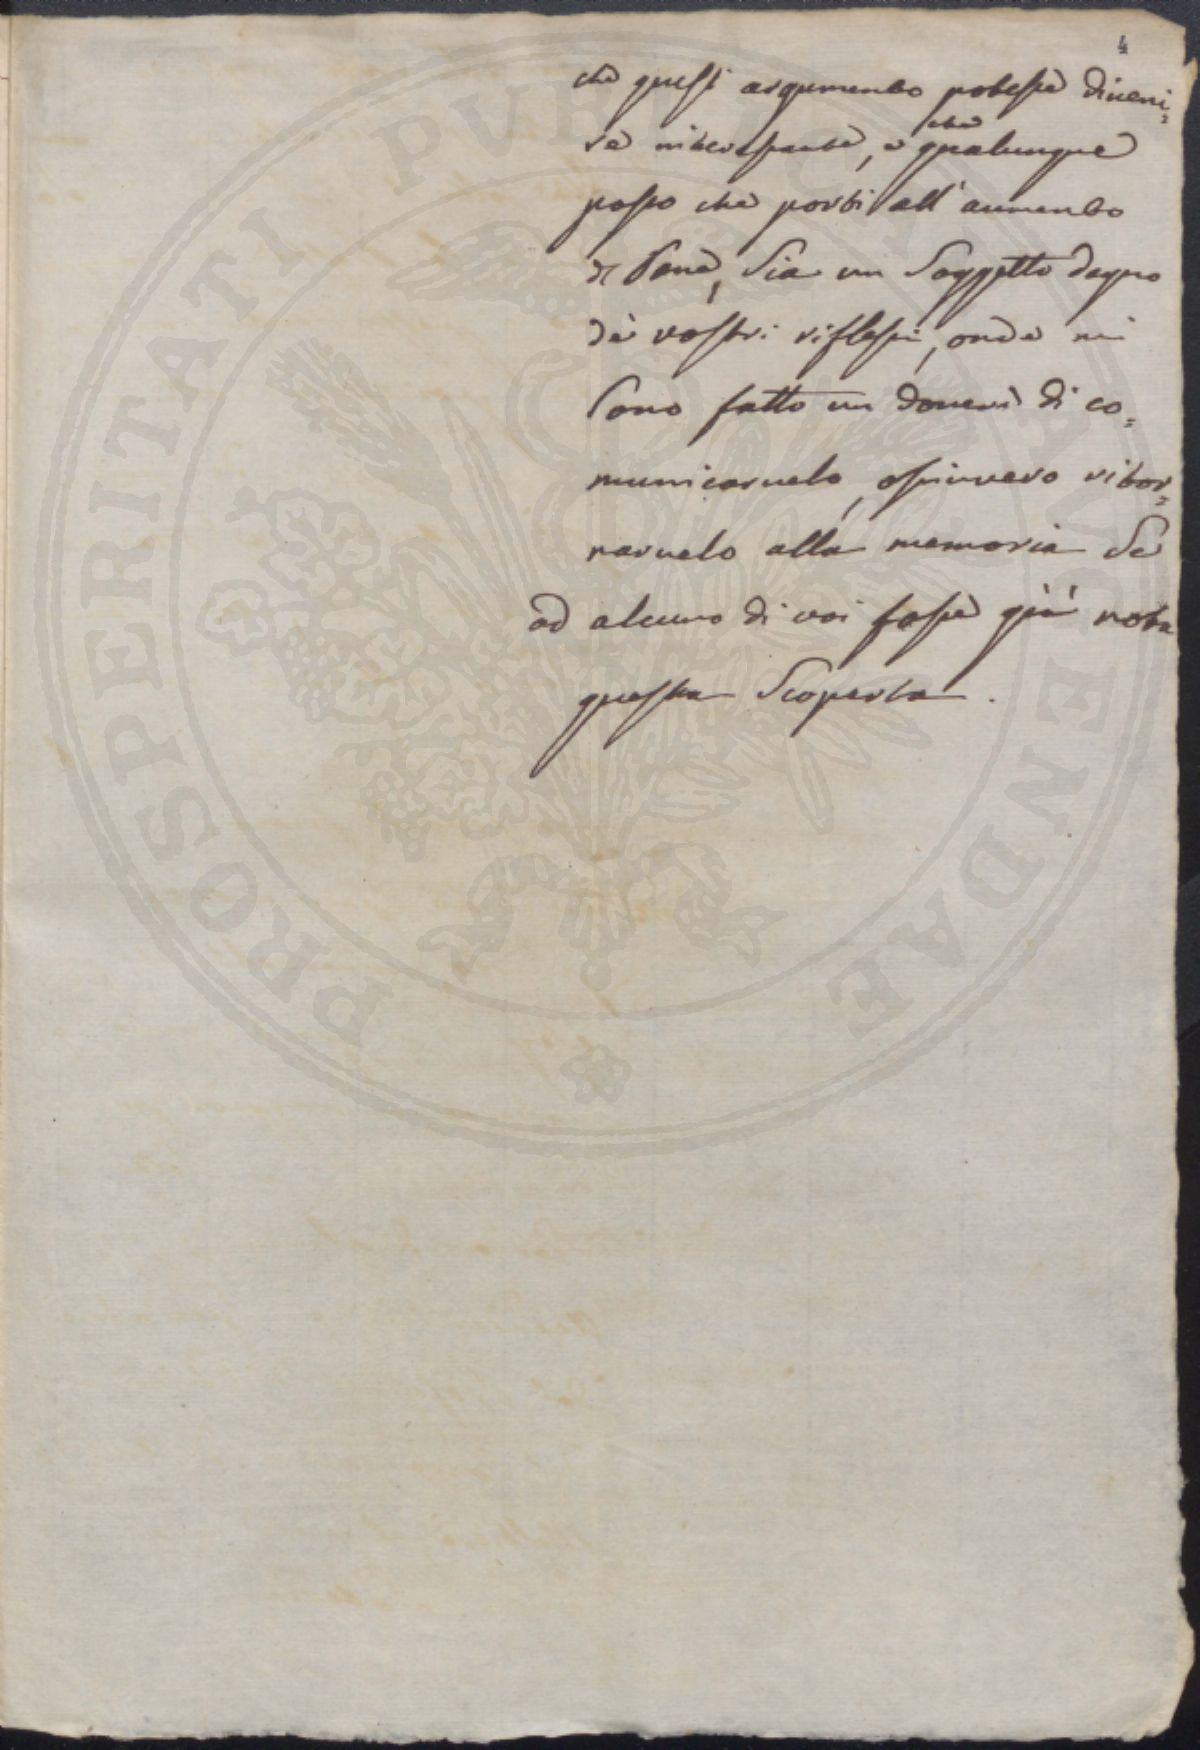 4
che quest argumento potesse diveni=
re interessante, e che qualunque
passo che porti all'aumento
di Pane, sia un Soggetto degno
de vostri riflessi, onde mi
sono fatto un dovere di co=
municarvelo, ossivvero ritor=
narvelo alla memoria Se
ad alcuno di voi fosse già nota
questa Scoperta.
PROSPERITATI PUBLICAE AUGENDAE